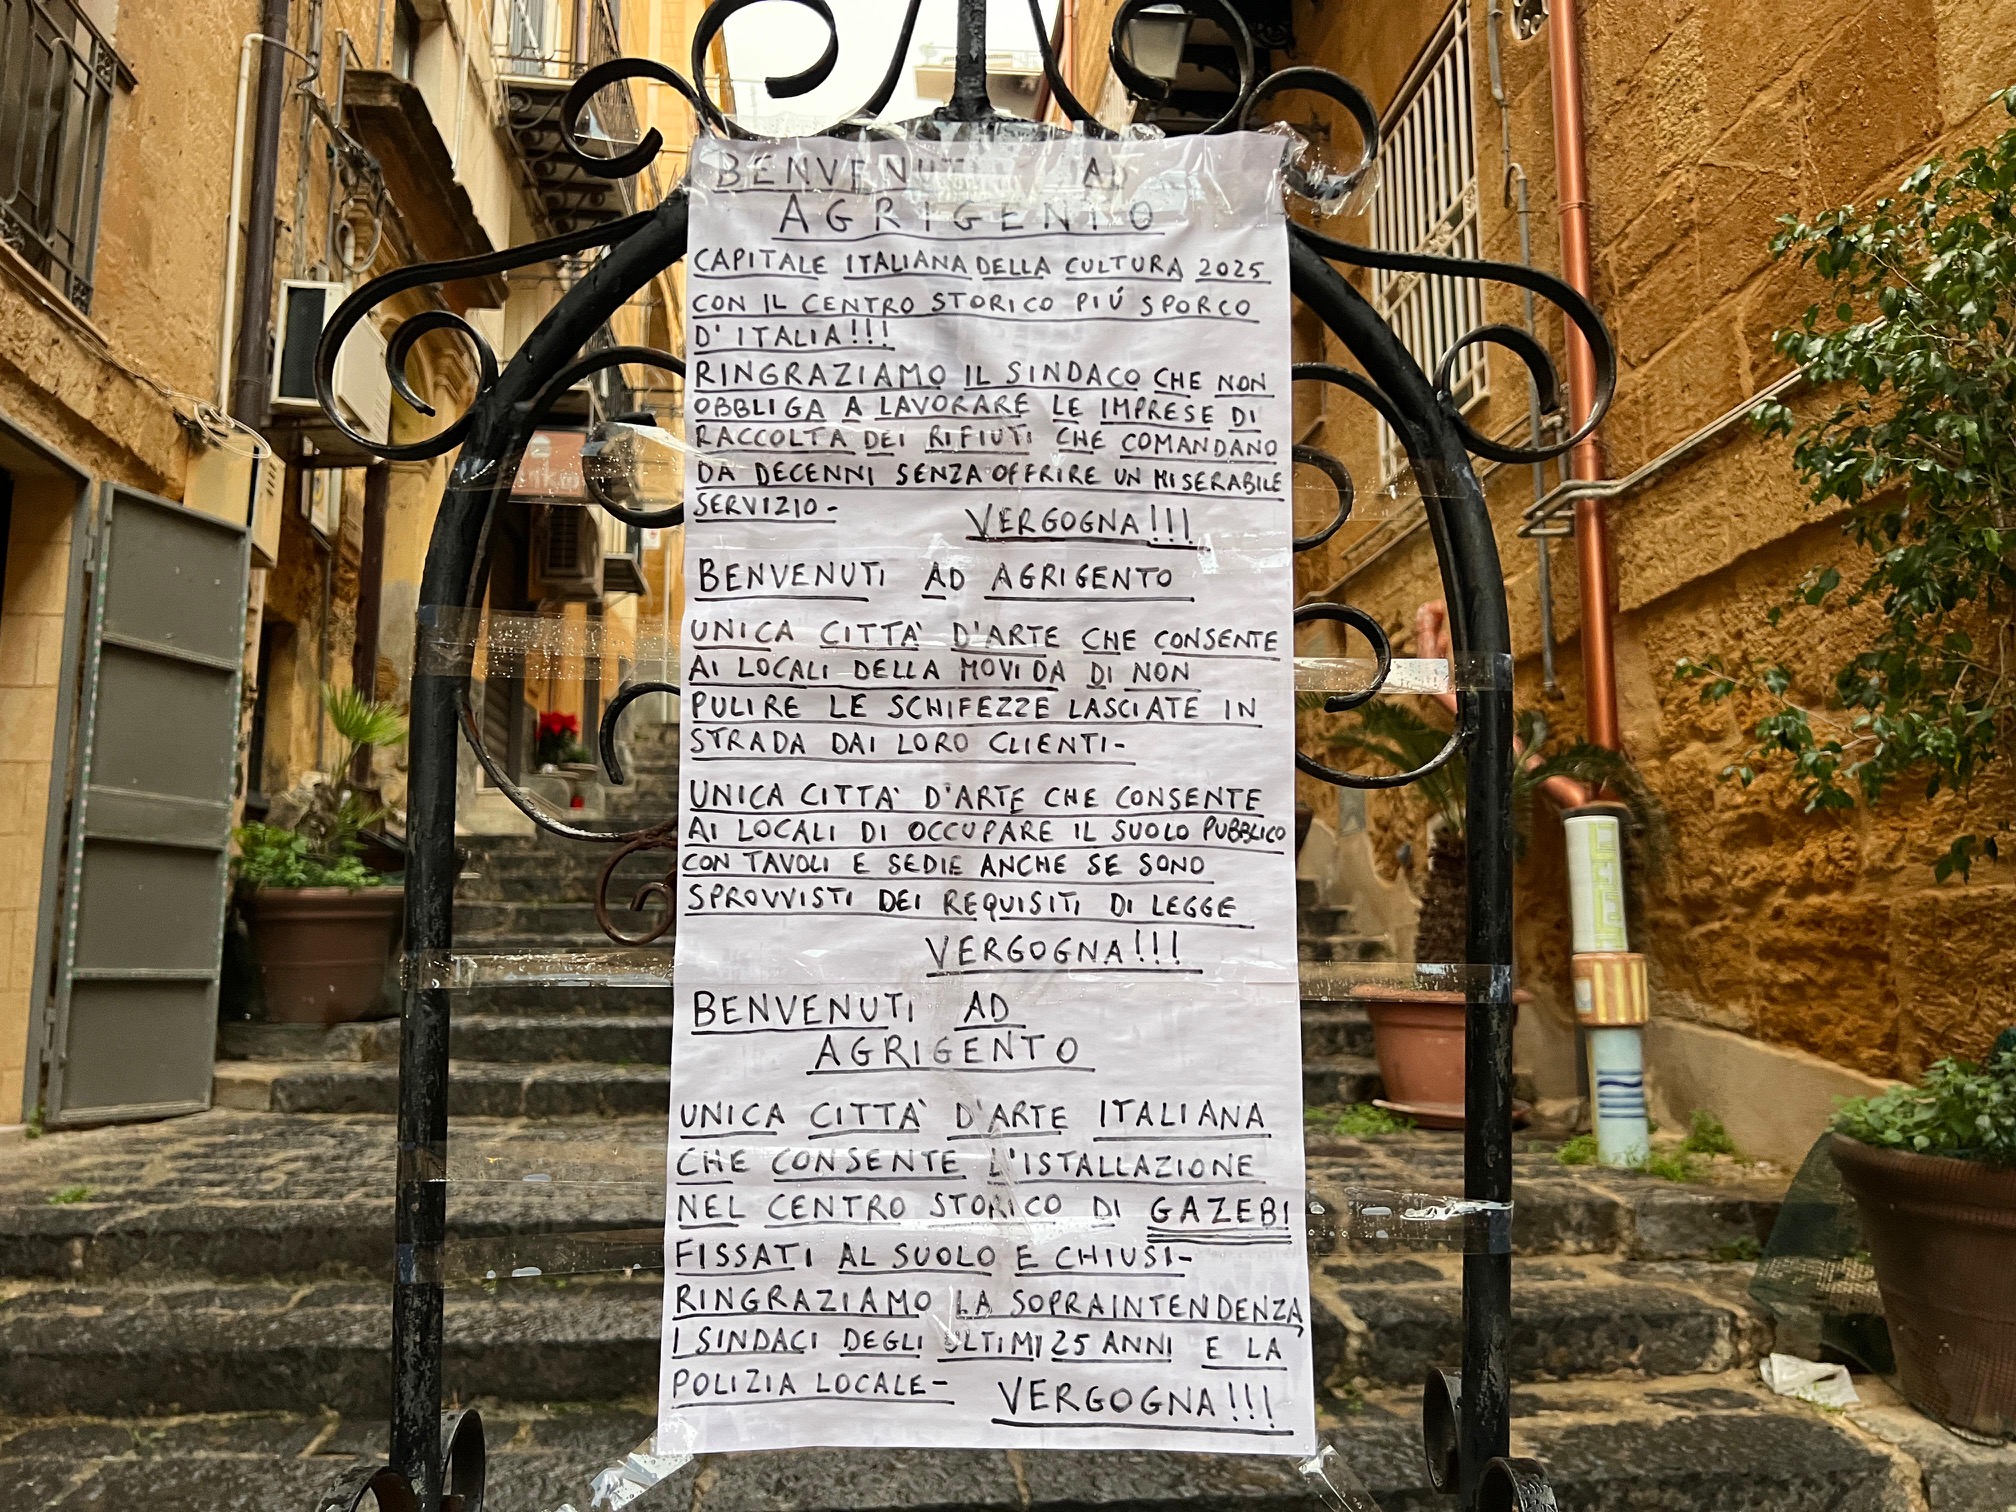 BENVENUTI AD
AGRIGENTO
CAPITALE ITALIANA DELLA CULTURA 2025
CON IL CENTRO STORICO PIÚ SPORCO
D'ITALIA!!!
RINGRAZIAMO IL SINDACO CHE NON
OBBLIGA A LAVORARE LE IMPRESE DI
RACCOLTA DEI RIFIUTI CHE COMANDANO
DA DECENNI SENZA OFFRIRE UN MISERABILE
SERVIZIO-
VERGOGNA!!!
BENVENUTI AD AGRIGENTO
UNICA CITTA' D'ARTE CHE CONSENTE
AI LOCALI DELLA MOVIDA DI NON
PULIRE LE SCHIFEZZE LASCIATE IN
STRADA DAI LORO CLIENTI-
UNICA CITTA' D'ARTE CHE CONSENTE
AI LOCALI DI OCCUPARE IL SUOLO PUBBLICO
CON TAVOLI E SEDIE ANCHE SE SONO
SPROVVISTI DEI REQUISITI DI LEGGE
VERGOGNA!!!
BENVENUTI AD
AGRIGENTO
UNICA CITTA' D'ARTE ITALIANA
CHE CONSENTE L'ISTALLAZIONE
NEL CENTRO STORICO DI GAZEBI
FISSATI AL SUOLO E CHIUSI-
RINGRAZIAMO LA SOPRAINTENDENZA,
I SINDACI DEGLI ULTIMI 25 ANNI E LA
POLIZIA LOCALE-
VERGOGNA!!!